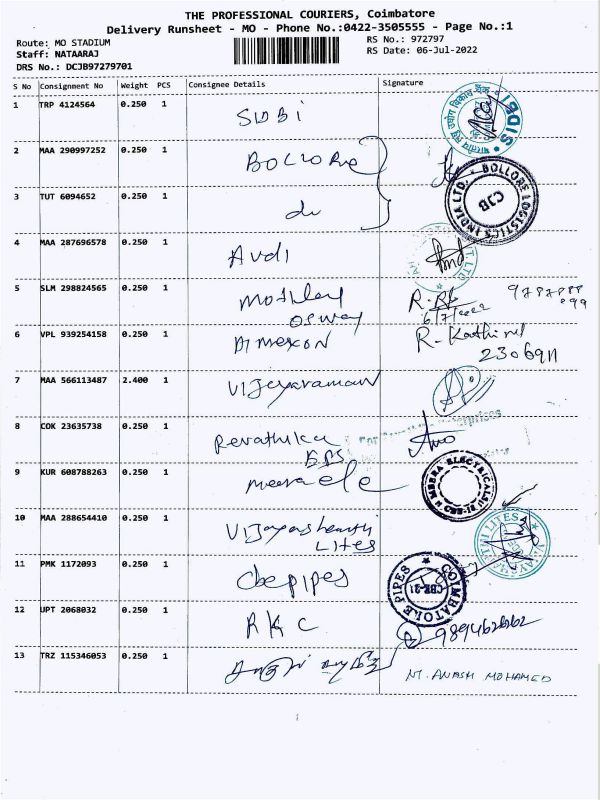 THE PROFESSIONAL COURIERS, Coimbatore
Delivery Runsheet - MO - Phone No.:0422-3505555 - Page No.:1
Route: MO STADIUM
RS No.: 972797
Staff: NATAARAJ
RS Date: 06-Jul-2022
DRS No.: DCJB97279701
S No Consignment No Weight PCS Consignee Details Signature
1 TRP 4124564 0.250 1 SIDBI
2 MAA 290997252 0.250 1 BOLLORE
BOLLORE LOGISTICS INDIA LTD. CJB
3 TUT 6094652 0.250 1 do
4 MAA 287696578 0.250 1 AUDI
5 SLM 298824565 0.250 1 Motilal
6/7/2022
6 VPL 939254158 0.250 1 R. Kathirvel
2306911
7 MAA 566113487 2.400 1 Vijayaraman
8 COK 23635738 0.250 1 Revathika
EPS
9 KUR 608788263 0.250 1 meera ele
10 MAA 288654410 0.250 1 Vijayashanthi
Lites
11 PMK 1172093 0.250 1 cbe pipes
COIMBATORE PIPES
12 UPT 2068032 0.250 1 RKC
13 TRZ 115346053 0.250 1
M. ANASH MOHAMED